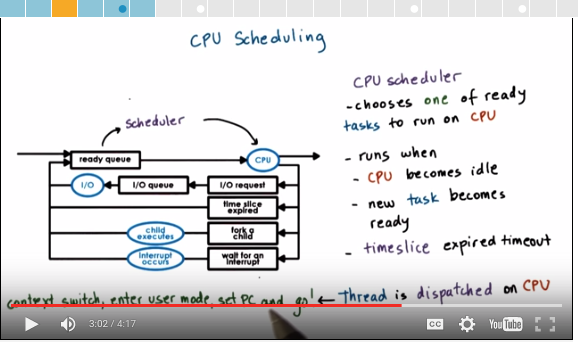 CPU Scheduling
Scheduler
ready queue
CPU
I/O
I/O queue
I/O request
time slice
expired
child
executes
fork a
child
interrupt
occurs
wait for an
interrupt
CPU scheduler
-chooses one of ready
tasks to run on CPU
- runs when
- CPU becomes idle
- new task becomes
ready
- timeslice expired timeout
context switch, enter user mode, set PC and go! ← Thread is dispatched on CPU
3:02 / 4:17
CC
YouTube